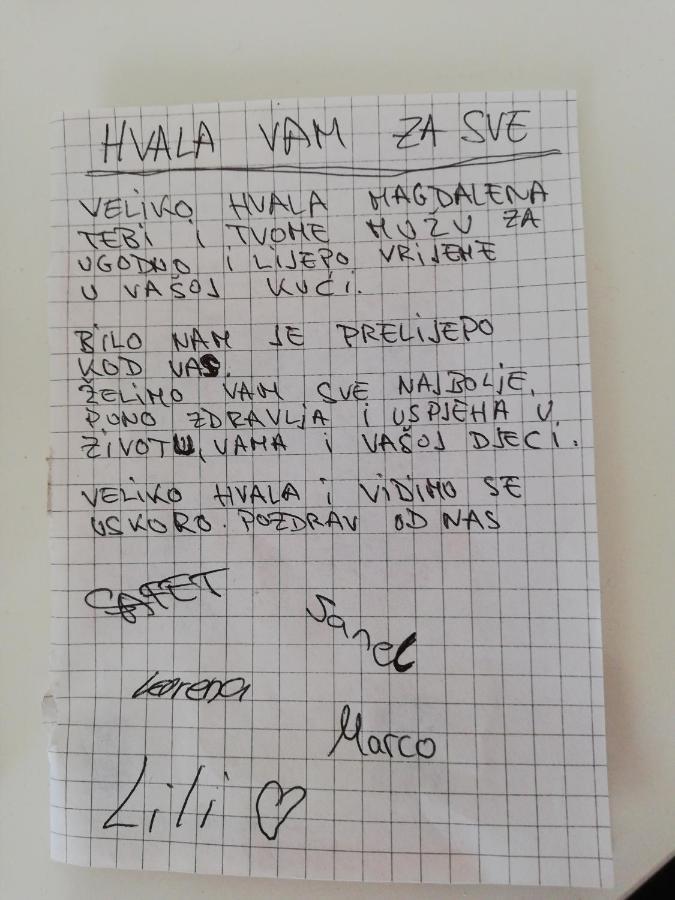 HVALA VAM ZA SVE
VELIKO HVALA MAGDALENA
TEBI I TVOME MUŽU ZA
UGODNO I LIJEPO VRIJEME
U VAŠOJ KUĆI.
BILO NAM JE PRELIJEPO
KOD VAS.
ŽELIMO VAM SVE NAJBOLJE,
PUNO ZDRAVLJA I USPJEHA U
ŽIVOTU, VAMA I VAŠOJ DJECI.
VELIKO HVALA I VIDIMO SE
USKORO. POZDRAV OD NAS
SAFET
Sanel
Lorena
Marco
Lili ♡